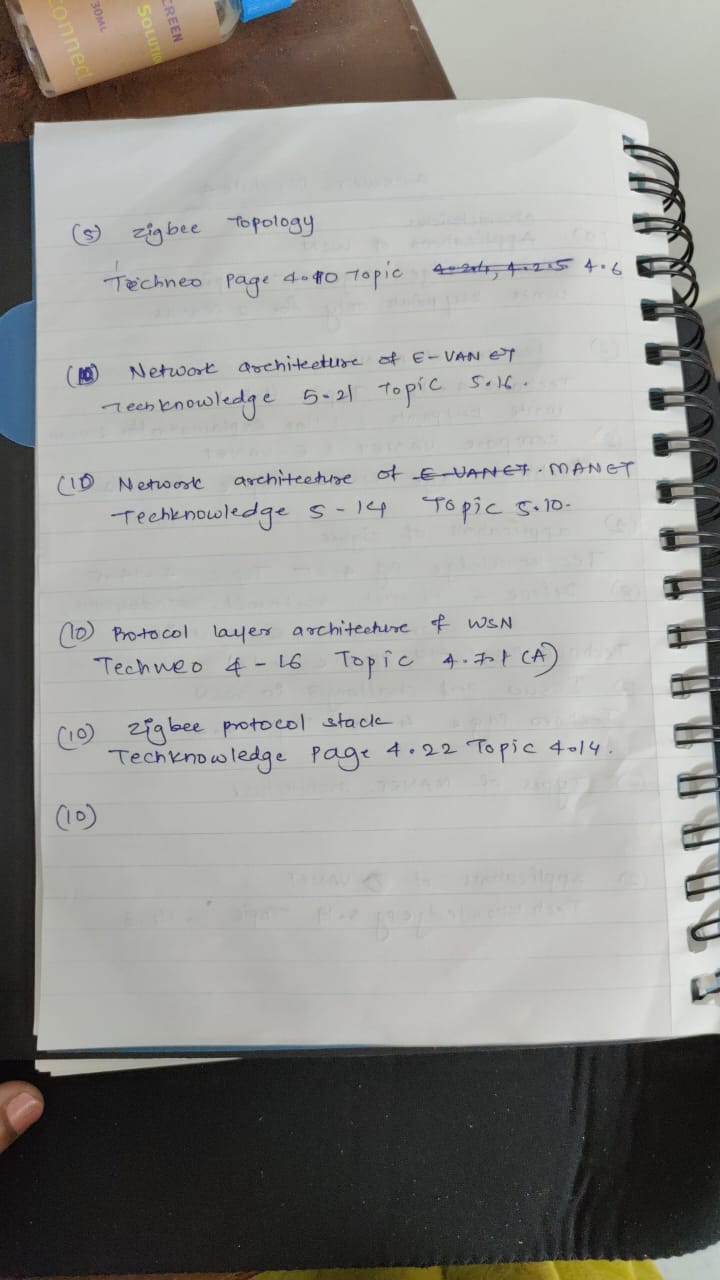 CREEN
SOLUTIO
30ML
connec
(5) zigbee Topology
Techneo Page 4.10 Topic 4.2.4, 4.2.5 4.6
(10) Network architecture of E-VANET
Techknowledge 5.21 Topic 5.16.
(10) Network architecture of E-VANET. MANET
Techknowledge 5-14 Topic 5.10.
(10) Protocol layer architecture of WSN
Techneo 4-16 Topic 4.7.1 (A)
(10) zigbee protocol stack
Techknowledge Page 4.22 Topic 4.14.
(10)